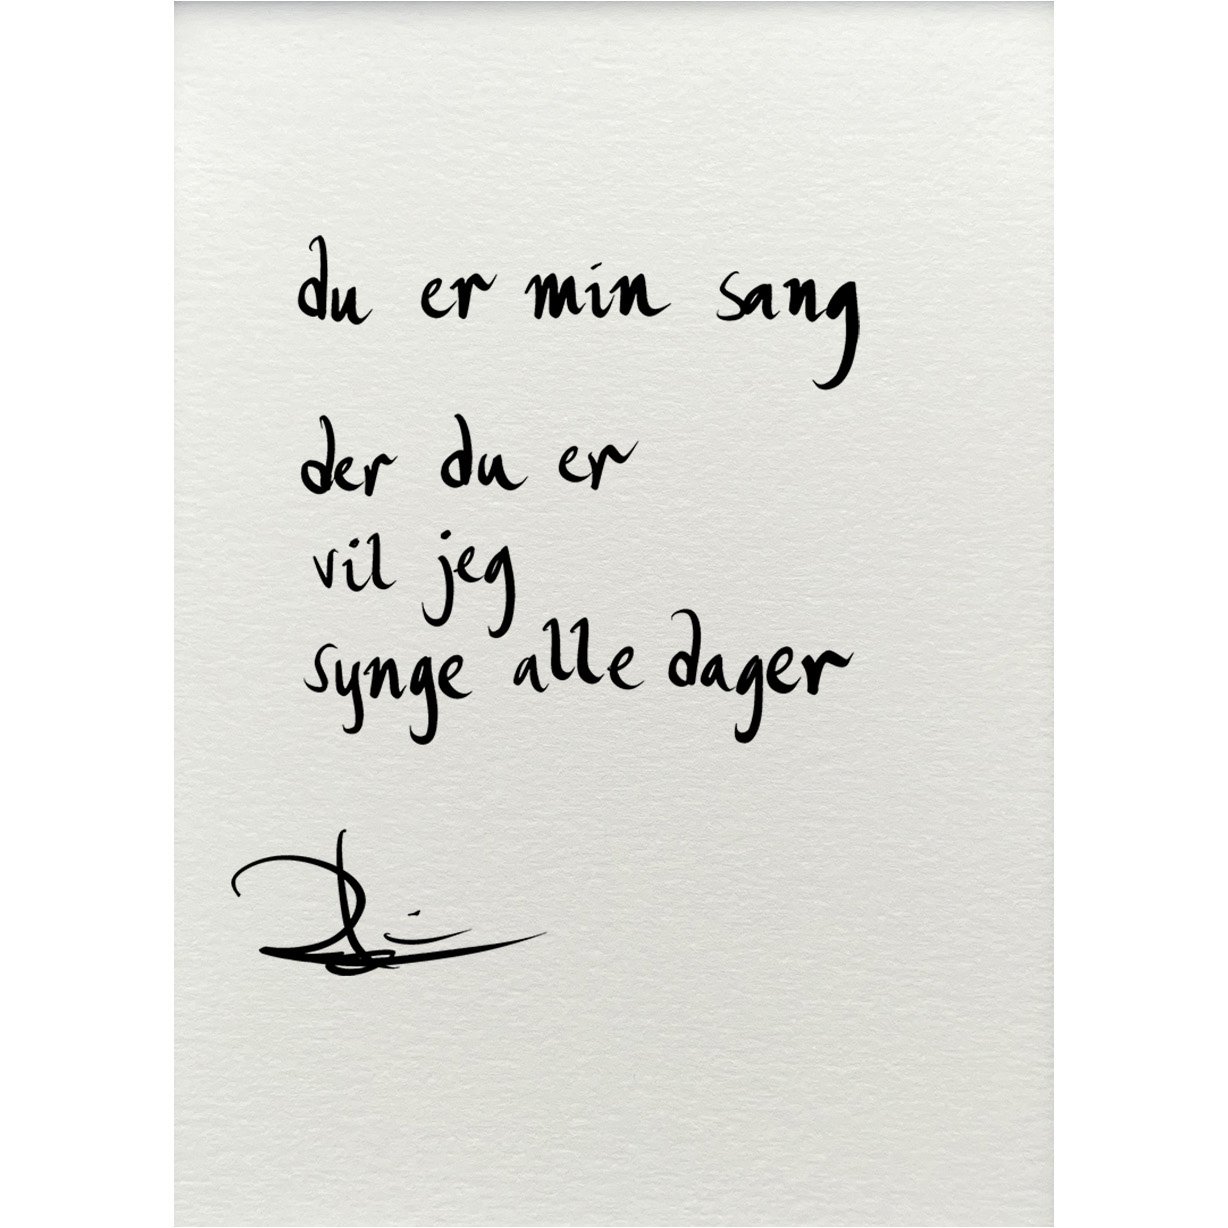 du er min sang
der du er
vil jeg
synge alle dager